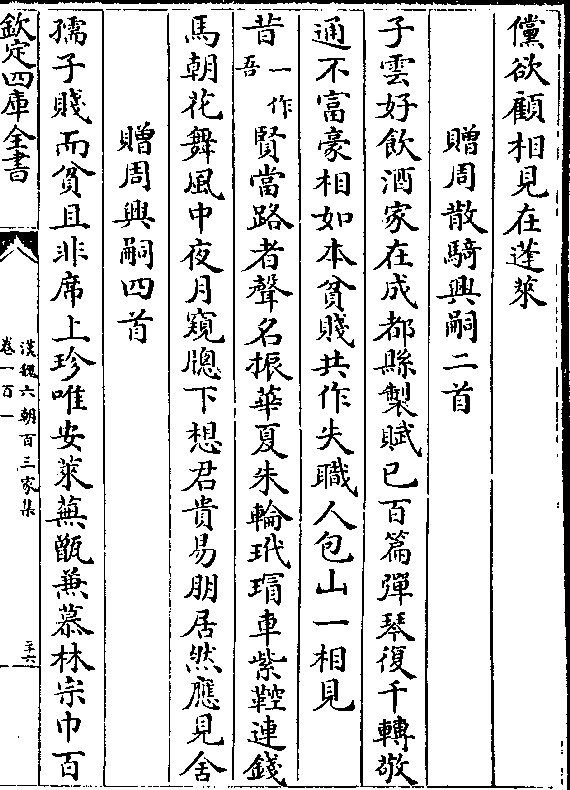 儻欲顧相見在蓬萊
贈周散騎興嗣二首
子雲好飲酒家在成都縣製賦已百篇彈琴復千轉敬
通不富豪相如本貧賤共作失職人包山一相見
昔一作吾賢當路者聲名振華夏朱輪玳瑁車紫鞚連錢
馬朝花舞風中夜月窺牕下想君貴易朋居然應見舍
贈周興嗣四首
孺子賤而貧且非席上珍唯安萊蕪甑兼慕林宗巾百
欽定四庫全書
漢魏六朝百三家集
卷一百一